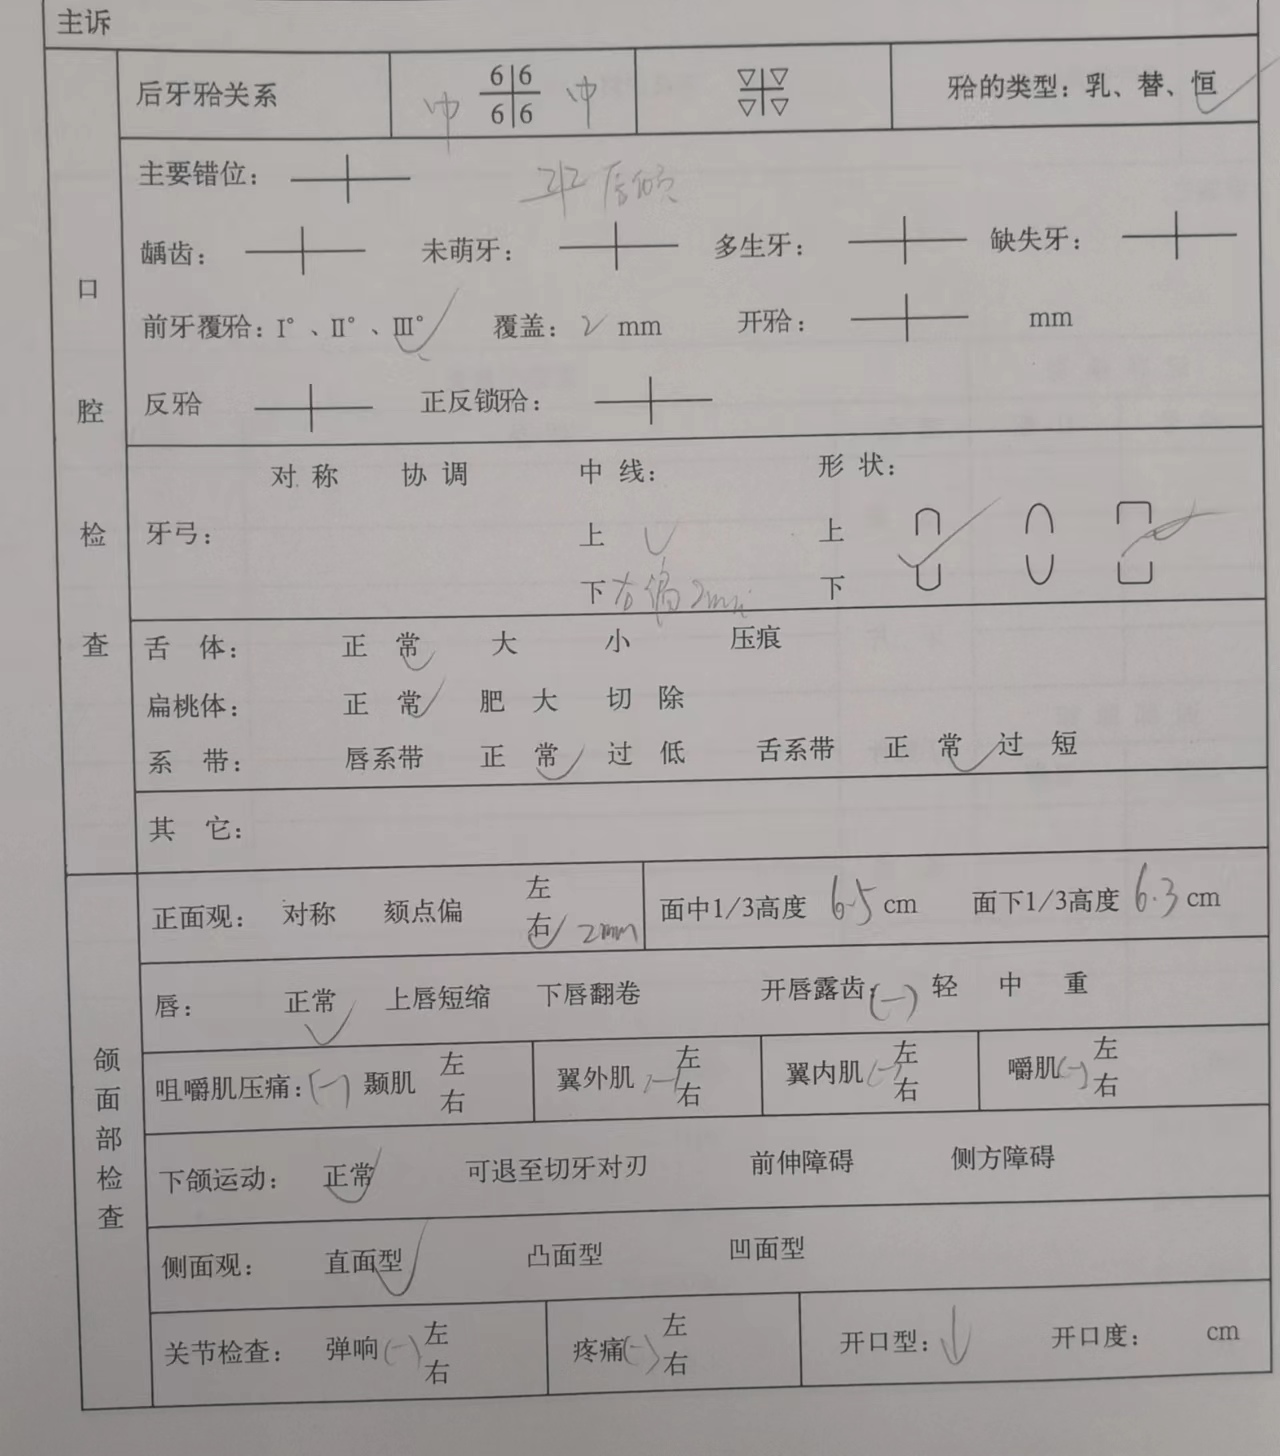 主诉
后牙𬌗关系 中 6 6 6 6 中 𬌗的类型：乳、替、恒
主要错位： 2 2 2 唇倾
龋齿： 未萌牙： 多生牙： 缺失牙：
前牙覆𬌗：I°、II°、III° 覆盖：2 mm 开𬌗： mm
反𬌗 正反锁𬌗：
对称 协调 中线： 形状：
牙弓： 上 上
下 右偏2mm 下
舌 体： 正常 大 小 压痕
扁桃体： 正常 肥大 切除
系 带： 唇系带 正常 过低 舌系带 正常 过短
其 它：
口腔检查
正面观： 对称 颏点偏 左 右 2mm 面中1/3高度 6.5 cm 面下1/3高度 6.3 cm
唇： 正常 上唇短缩 下唇翻卷 开唇露齿 (-) 轻 中 重
咀嚼肌压痛：(-) 颞肌 左 右 翼外肌 (-) 左 右 翼内肌 (-) 左 右 嚼肌 (-) 左 右
下颌运动： 正常 可退至切牙对刃 前伸障碍 侧方障碍
侧面观： 直面型 凸面型 凹面型
关节检查： 弹响 (-) 左 右 疼痛 (-) 左 右 开口型：↓ 开口度： cm
颌面部检查